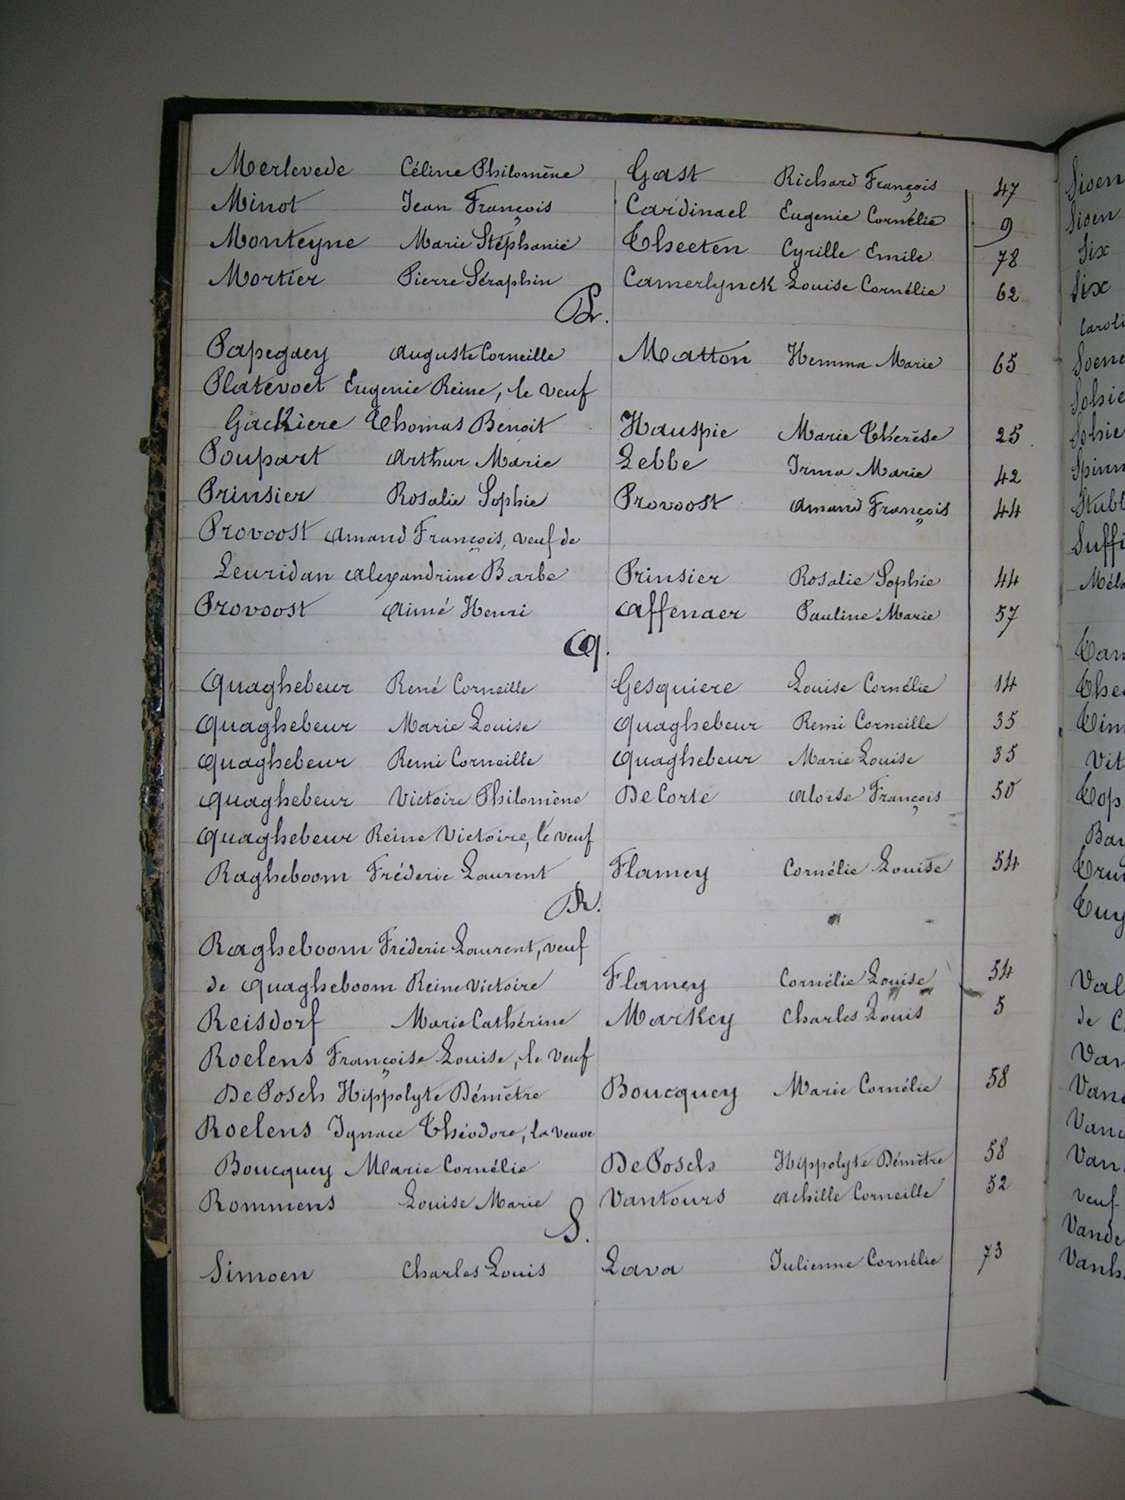 Merlevede Céline Philomène Gast Richard François 47
Minot Jean François Cardinael Eugenie Cornélie 9
Monteyne Marie Stéphanie Theeten Cyrille Emile 78
Mortier Pierre Séraphin Camerlynck Louise Cornélie 62
P.
Papegaey Auguste Corneille Matton Hemma Marie 65
Platevoet Eugenie Reine, le veuf
Gackiere Thomas Benoit Hauspie Marie Thérèse 25
Poupart Arthur Marie Lebbe Irma Marie 42
Prinsier Rosalie Sophie Provoost Amand François 44
Provoost Amand François, veuf de
Leuridan Alexandrine Barbe Prinsier Rosalie Sophie 44
Provoost Aimé Henri Affenaer Pauline Marie 57
Q.
Quaghebeur René Corneille Gesquiere Louise Cornélie 14
Quaghebeur Marie Louise Quaghebeur Remi Corneille 35
Quaghebeur Remi Corneille Quaghebeur Marie Louise 35
Quaghebeur Victoire Philomène De Corte Aloïse François 50
Quaghebeur Reine Victoire, le veuf
Ragheboom Fréderic Laurent Flamey Cornélie Louise 54
R.
Ragheboom Fréderic Laurent, veuf
de Quagheboom Reine Victoire Flamey Cornélie Louise 54
Reisdorf Marie Cathérine Markey Charles Louis 5
Roelens Françoise Louise, le veuf
De Posch Hippolyte Démètre Boucquey Marie Cornélie 58
Roelens Ignace Théodore, la veuve
Boucquey Marie Cornélie De Posch Hippolyte Démètre 58
Rommens Louise Marie Vantours Achille Corneille 52
S.
Simoen Charles Louis Lava Julienne Cornélie 73
Sioen
Sioen
Six
Six